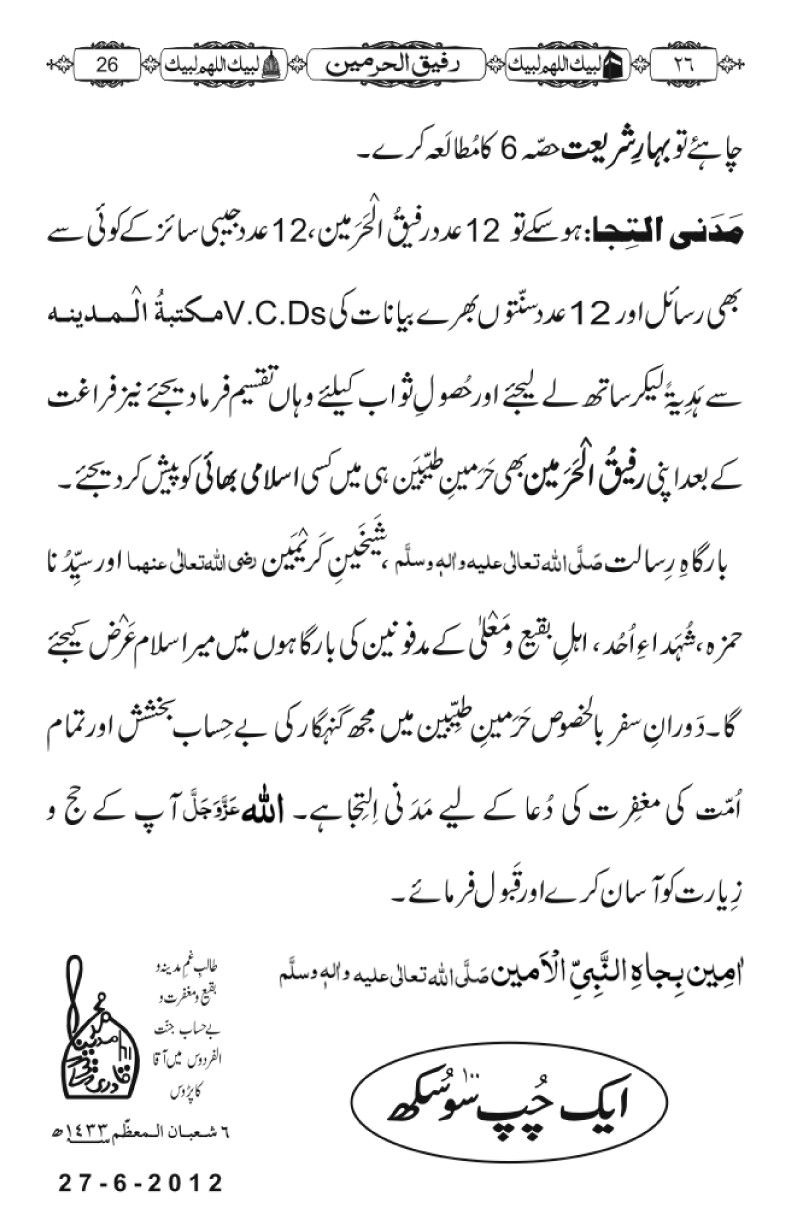 ٢٦ لبیك اللهم لبیك رفیق الحرمین لبیك اللهم لبیك 26
چاہئے تو بہارِ شریعت حصّہ 6 کا مُطالَعہ کرے۔
مَدَنی التِجا: ہو سکے تو 12 عدد رفیقُ الْحَرَمین، 12 عدد جیبی سائز کے کوئی سے
بھی رسائل اور 12 عدد سنّتوں بھرے بیانات کی V.C.Ds مکتبۃُ الْمدینہ
سے ہَدِیۃً لیکر ساتھ لے لیجئے اور حُصولِ ثواب کیلئے وہاں تقسیم فرما دیجئے نیز فراغت
کے بعد اپنی رفیقُ الْحَرَمین بھی حَرَمینِ طیِّبَین ہی میں کسی اسلامی بھائی کو پیش کر دیجئے۔
بارگاہِ رِسالت صَلَّی اللہ تعالٰی علیہ واٰلہٖ وسلَّم ، شَیخَینِ کَرِیْمَین رضی اللہ تعالٰی عنہما اور سیِّدُنا
حمزہ، شُہَداءِ اُحُد، اہلِ بقیع و مَعْلٰی کے مدفونین کی بارگاہوں میں میرا سلام عَرْض کیجئے
گا۔ دَورانِ سفر بالخصوص حَرَمینِ طیِّبین میں مجھ گنہگار کی بے حِساب بخشش اور تمام
اُمّت کی مغفِرت کی دُعا کے لیے مَدَنی اِلتِجا ہے۔ اللہ عَزَّوَجَلَّ آپ کے حج و
زِیارت کو آسان کرے اور قَبول فرمائے۔
اٰمین بِجاہِ النَّبِیِّ الْاَمین صَلَّی اللہ تعالٰی علیہ واٰلہٖ وسلَّم
طالبِ غمِ مدینہ و
بقیع و مغفرت و
بے حساب جنّت
الفردوس میں آقا
کا پڑوس
محمد الیاس قادری رضوی
ایک چُپ سو ۱۰۰ سُکھ
٦ شعبان المعظّم ١٤٣٣ھ
27-6-2012